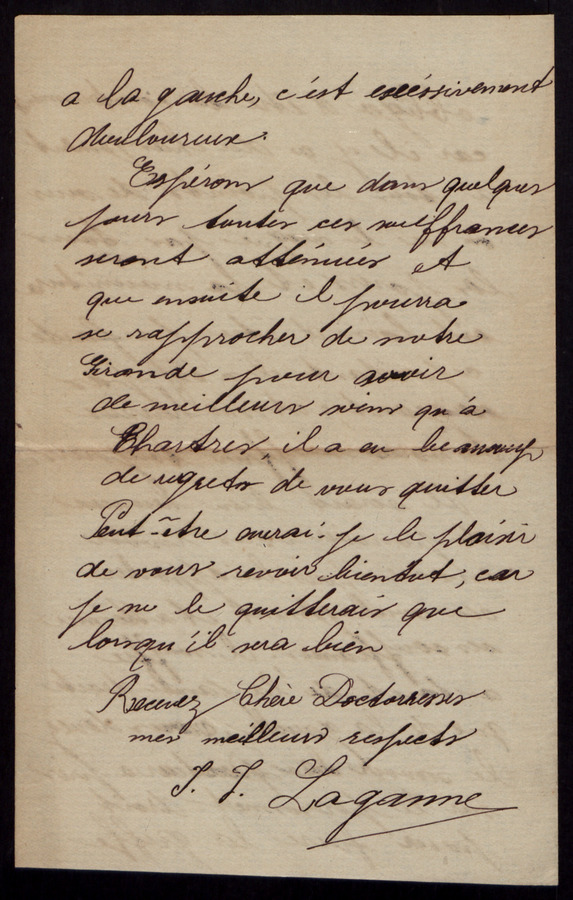 a la gauche, c'est excéssivement
douloureux.
Espérons que dans quelques
jours toutes ces souffrances
seront atténuées et
que ensuite il pourra
se rapprocher de notre
Gironde pour avoir
de meilleurs soins qu'à
Chartres, il a eu beaucoup
de regrets de vous quitter
Peut-être aurai-je le plaisir
de vous revoir bientot, car
je ne le quitterais que
lorsqu'il sera bien
Recevez Chère Doctoresses
mes meilleurs respects
J. J. Laganne